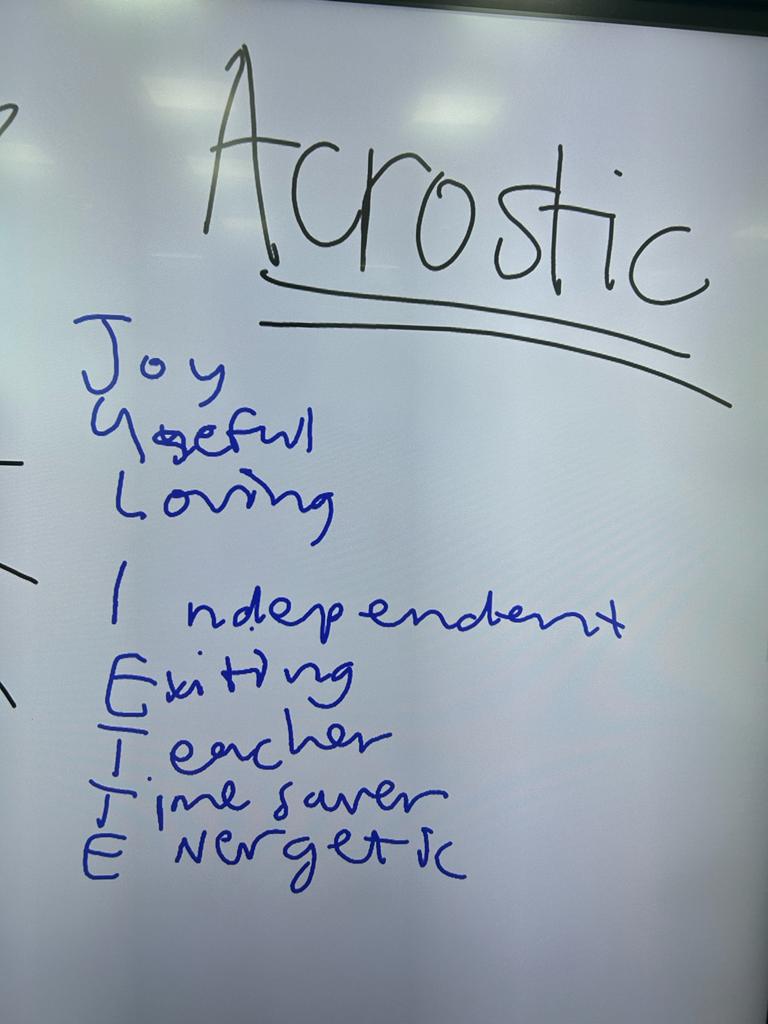 Acrostic
Joy
Useful
Loving
Independent
Exiting
Teacher
Time saver
Energetic